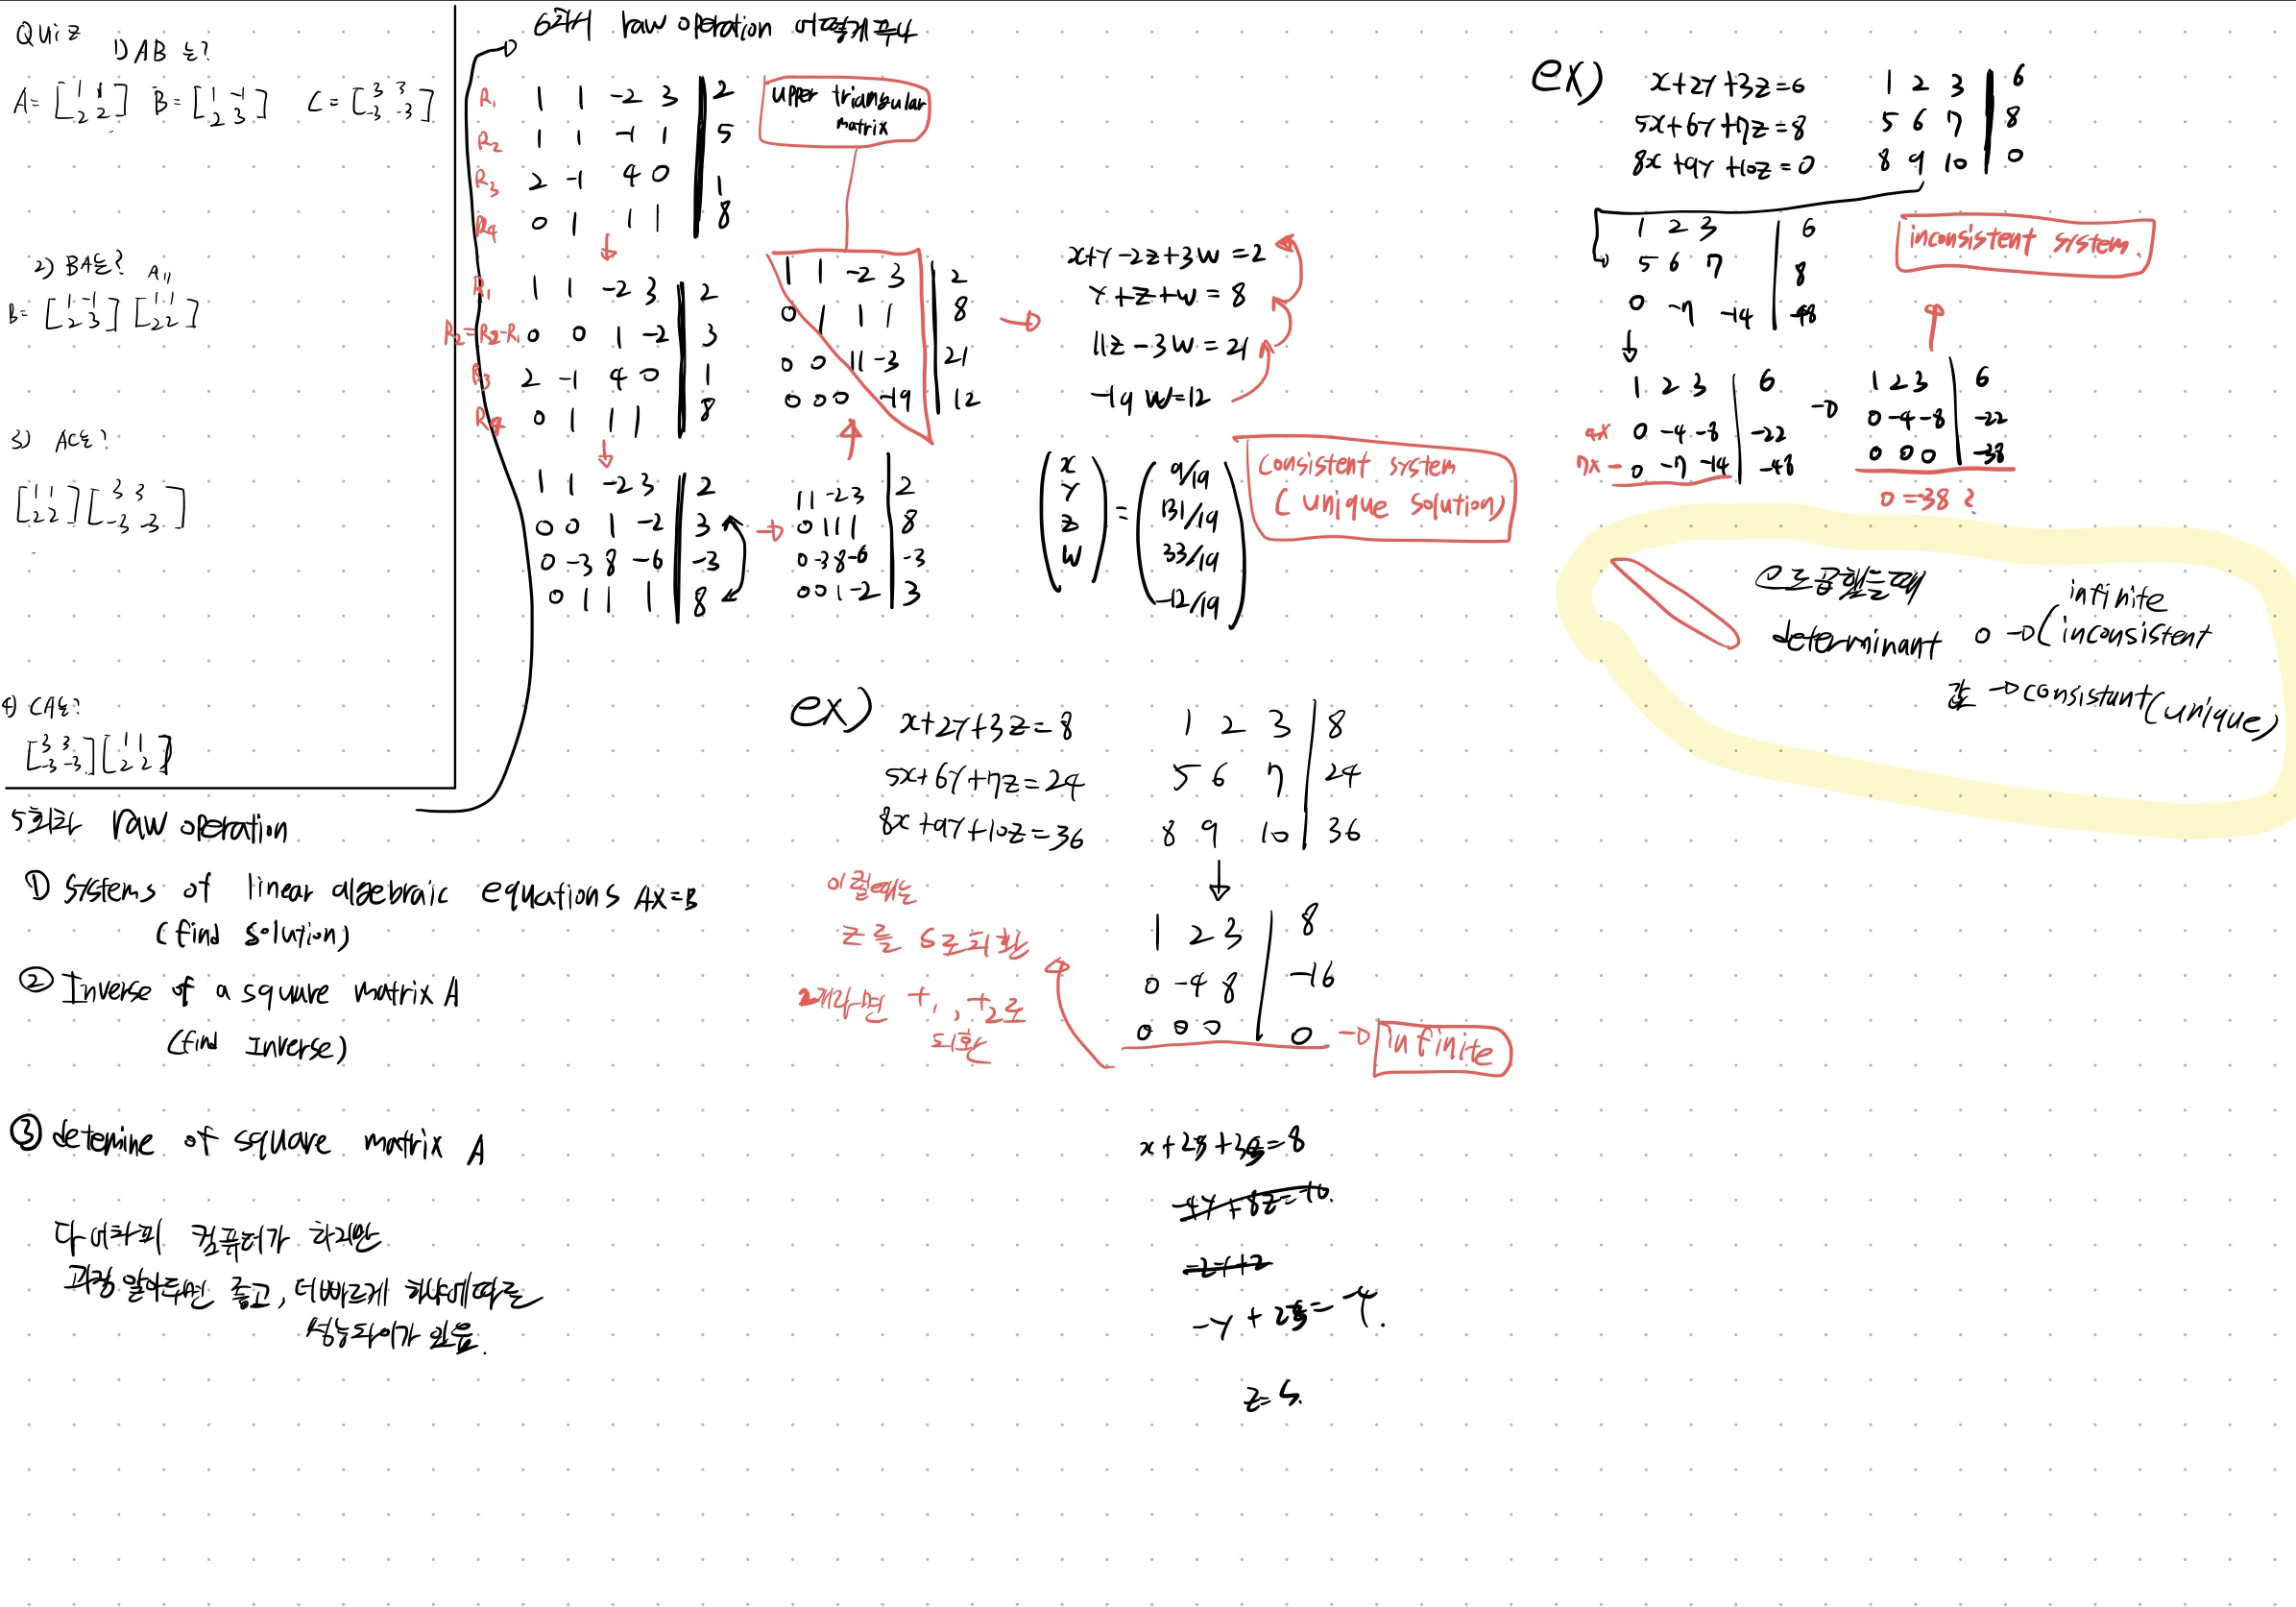 Quiz
1) AB는?
A= [1 1 B= [1 -1 C= [3 3
2 2] 2 3] -3 -3]
2) BA는? A"
B= [1 -1 [1 1
2 3] 2 2]
3) AC는?
[1 1 [3 3
2 2] -3 -3]
4) CA는?
[3 3 [1 1
-3 -3] 2 2]
5회차 raw operation
① systems of linear algebraic equations AX=B
(find solution)
② Inverse of a square matrix A
(find Inverse)
③ detemine of square matrix A
다 어차피 컴퓨터가 하지만
과정 알아두면 좋고, 더빠르게 하냐에따른
성능차이가 있음.
6회차 raw operation 어떻게푸냐
R₁ 1 1 -2 3 | 2
R₂ 1 1 -1 1 | 5
R₃ 2 -1 4 0 | 1
R₄ 0 1 1 1 | 8
R₁ 1 1 -2 3 | 2
R₂=R₂-R₁ 0 0 1 -2 | 3
R₃ 2 -1 4 0 | 1
R₄ 0 1 1 1 | 8
1 1 -2 3 | 2
0 0 1 -2 | 3
0 -3 8 -6 | -3
0 1 1 1 | 8
1 1 -2 3 | 2
0 1 1 1 | 8
0 -3 8 -6 | -3
0 0 1 -2 | 3
upper triangular
matrix
1 1 -2 3 | 2
0 1 1 1 | 8
0 0 11 -3 | 21
0 0 0 -19 | 12
x+y-2z+3w=2
y+z+w=8
11z-3w=21
-19w=12
(x y z w) = (9/19 131/19 33/19 -12/19)
consistent system
(unique solution)
ex) x+2y+3z=8 1 2 3 | 8
5x+6y+7z=24 5 6 7 | 24
8x+9y+10z=36 8 9 10 | 36
1 2 3 | 8
0 -4 8 | -16
0 0 0 | 0 → infinite
이럴때는
z를 s로치환
2개라면 t₁, t₂로
치환
-4y+8z=-16.
z=s.
ex) x+2y+3z=6 1 2 3 | 6
5x+6y+7z=8 5 6 7 | 8
8x+9y+10z=0 8 9 10 | 0
1 2 3 | 6
5 6 7 | 8
0 -7 -14 | -48
inconsistent system.
1 2 3 | 6
4x 0 -4 -8 | -22
7x - 0 -7 -14 | -48
1 2 3 | 6
0 -4 -8 | -22
0 0 0 | -38
0=-38?
infinite
determinant 0 → (inconsistent
값 → consistant(unique)